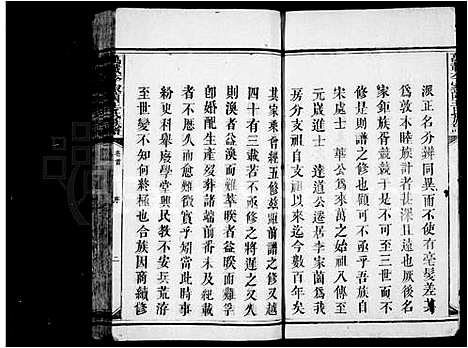 派正名分辨同異而不使有毫髮差久
為敦本睦族計者甚深且遠也厥後名
賢鉅族胥競競于是于三世而不
修是則譜之修也可不亟乎吾族自
宋處士 華公為來萬之始祖八傳至
元歲進士 達道公遷居李家菌為我
房分支祖自支祖以來迄今數百年矣
其家乘曾經五修茲距前譜之修又越
四十有三載若不亟修之將遲之又久
則渙者益渙而難萃睽者益睽而難孚
即婚配生產葬諸端前番未及紀載
者屬歷久而愈難徵實乎知當此時事
紛更科舉廢學堂興民教不安兵荒洊
至世變不知何終極也合族因商續修
卷首
序
二